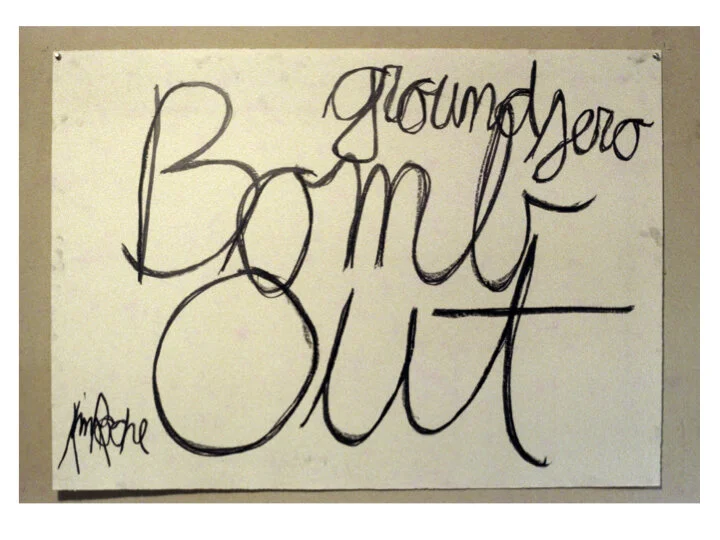 ground zero
Bomb
Out
Jim Roche